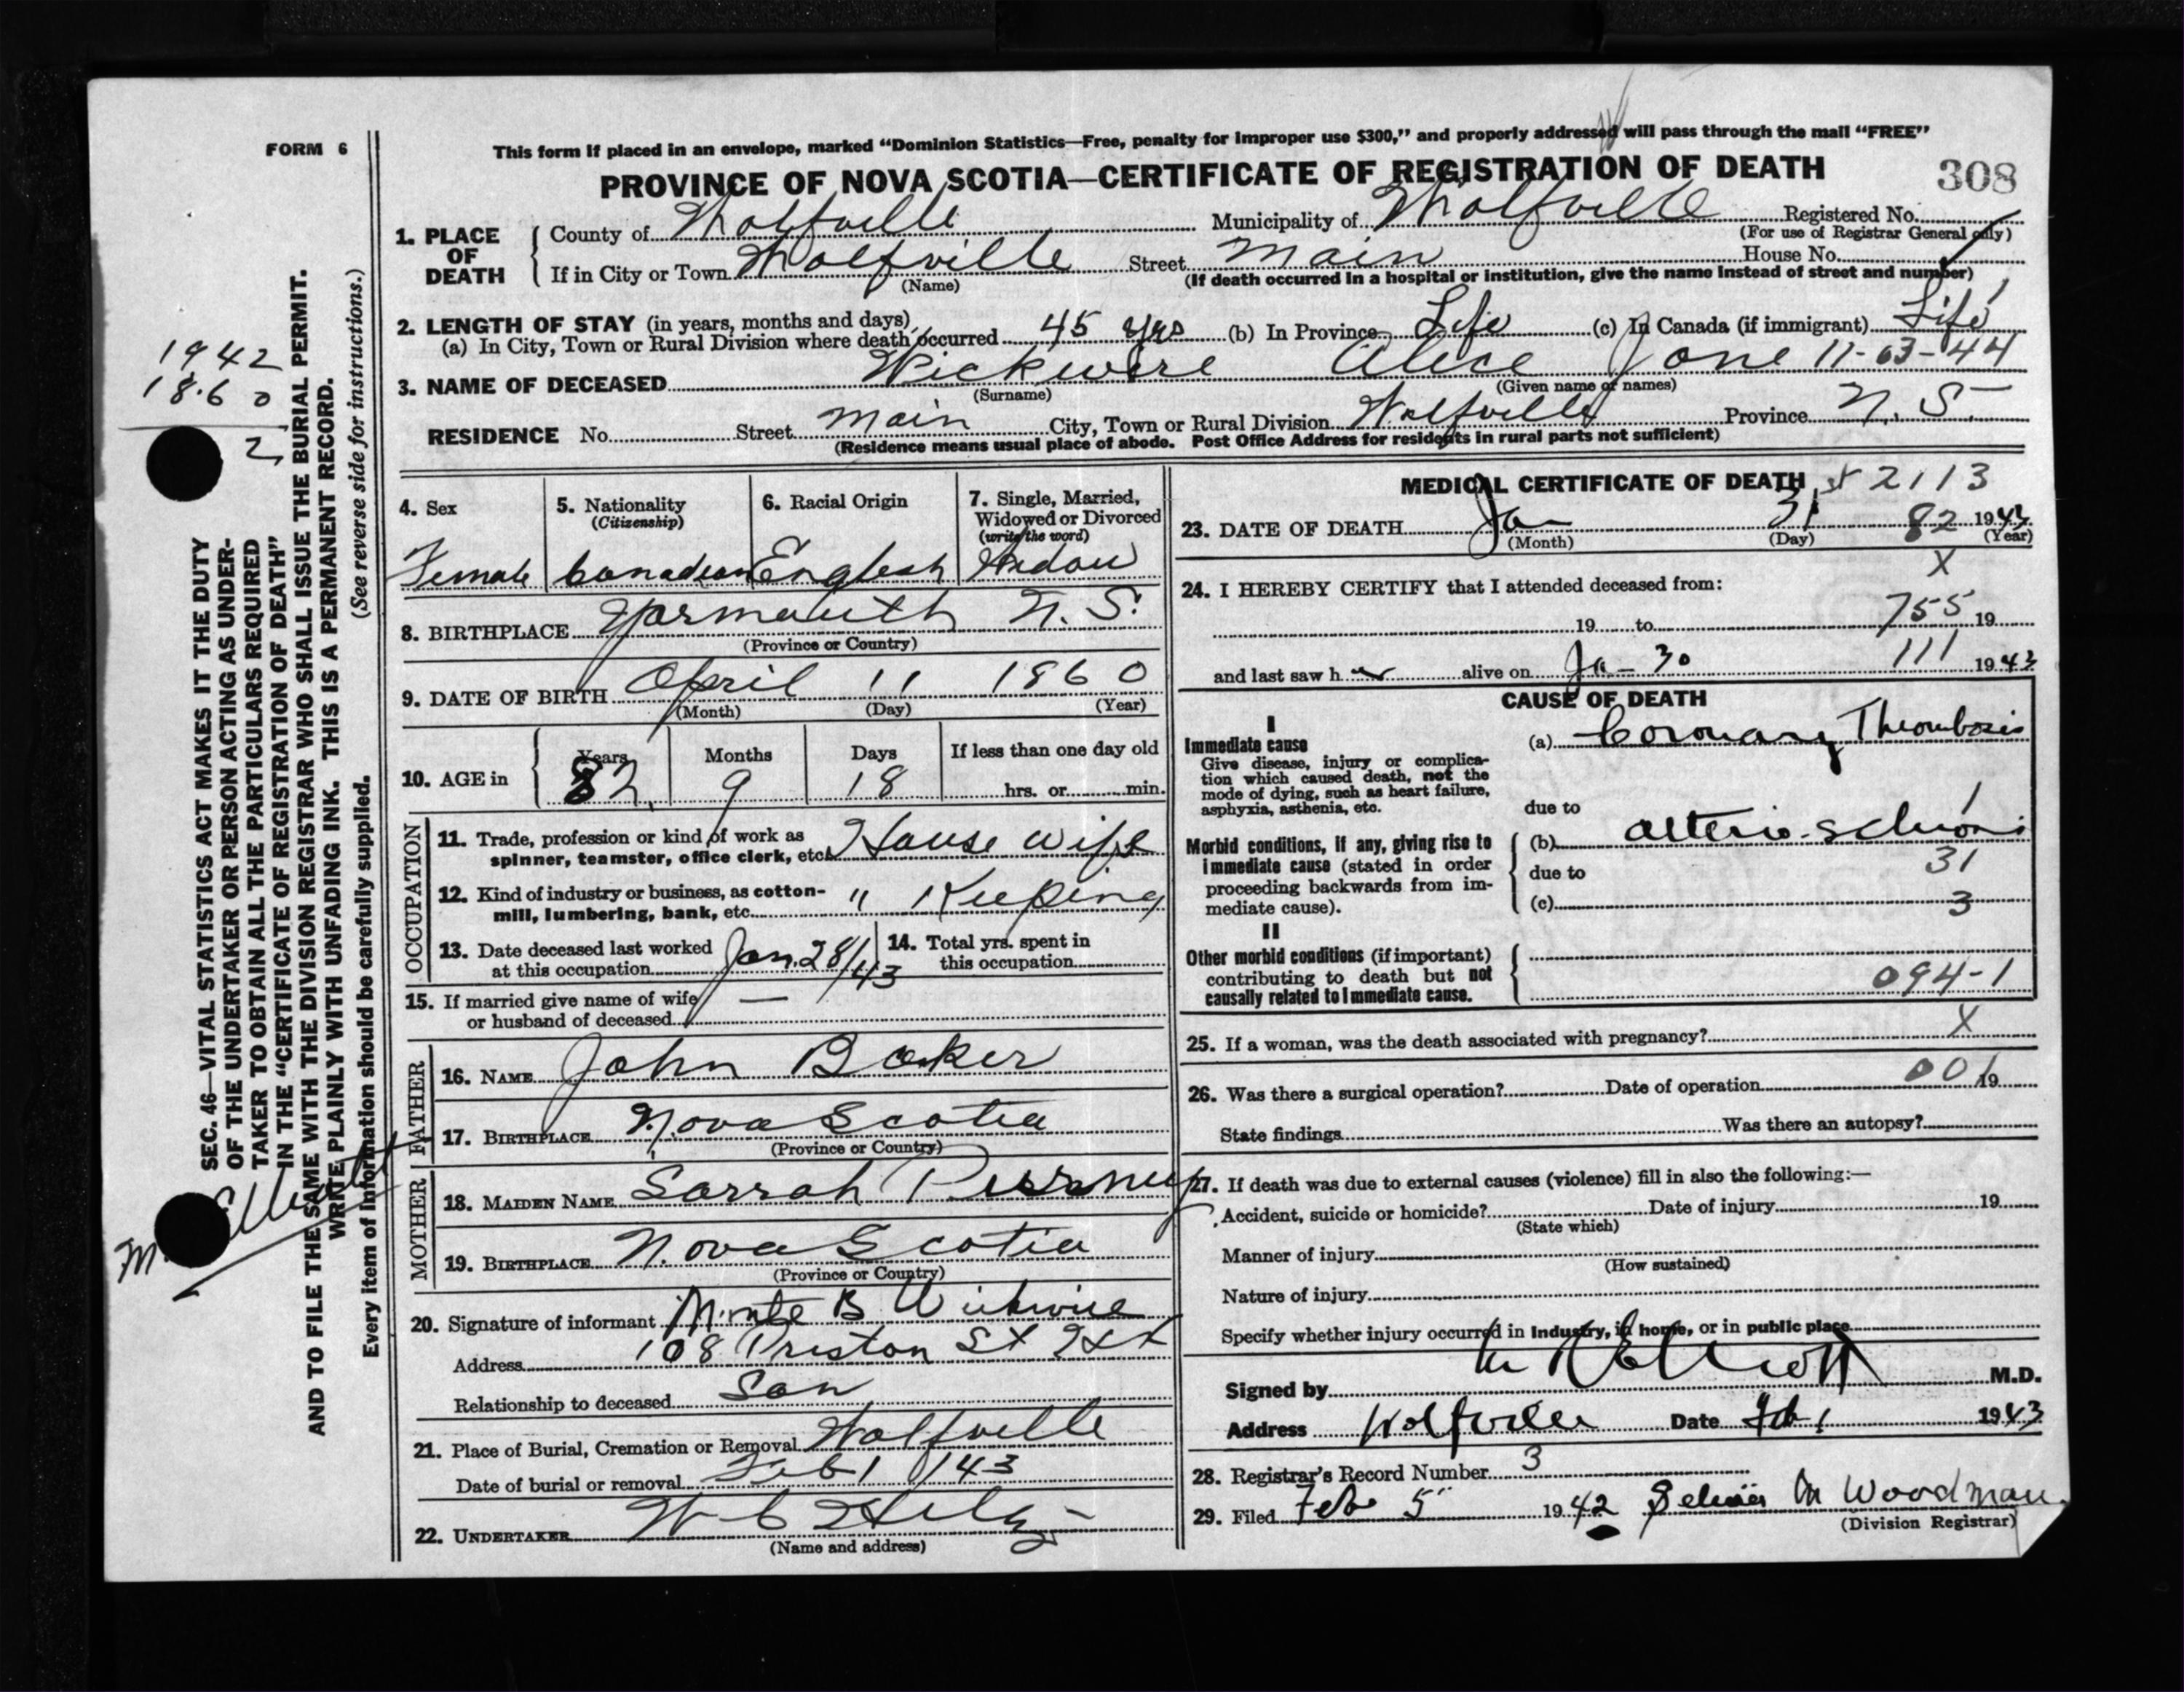 FORM 6
This form if placed in an envelope, marked "Dominion Statistics—Free, penalty for improper use $300," and properly addressed will pass through the mail "FREE"
PROVINCE OF NOVA SCOTIA—CERTIFICATE OF REGISTRATION OF DEATH
308
1. PLACE OF DEATH
County of Wolfville Municipality of Wolfville Registered No.
(For use of Registrar General only)
If in City or Town Wolfville Street Main House No.
(Name) (If death occurred in a hospital or institution, give the name instead of street and number)
2. LENGTH OF STAY (in years, months and days)
(a) In City, Town or Rural Division where death occurred 45 yrs (b) In Province Life (c) In Canada (if immigrant) Life
3. NAME OF DECEASED Wickwire Alice Jane 11-03-44
(Surname) (Given name or names)
RESIDENCE No. Street Main City, Town or Rural Division Wolfville Province N. S.
(Residence means usual place of abode. Post Office Address for residents in rural parts not sufficient)
4. Sex
Female
5. Nationality
(Citizenship)
Canadian
6. Racial Origin
English
7. Single, Married,
Widowed or Divorced
(write the word)
Widow
8. BIRTHPLACE Yarmouth N. S.
(Province or Country)
9. DATE OF BIRTH April 11 1860
(Month) (Day) (Year)
10. AGE in
Years Months Days If less than one day old
82 9 18 hrs. or min.
OCCUPATION
11. Trade, profession or kind of work as
spinner, teamster, office clerk, etc. House wife
12. Kind of industry or business, as cotton-
mill, lumbering, bank, etc. " Keeping
13. Date deceased last worked
at this occupation Jan. 28/43
14. Total yrs. spent in
this occupation
15. If married give name of wife
or husband of deceased —
FATHER
16. NAME John Baker
17. BIRTHPLACE Nova Scotia
(Province or Country)
MOTHER
18. MAIDEN NAME Sarrah
19. BIRTHPLACE Nova Scotia
(Province or Country)
20. Signature of informant Monte B Wickwire
Address 108 Preston St Hfx
Relationship to deceased Son
21. Place of Burial, Cremation or Removal Wolfville
Date of burial or removal Feb 1 /43
22. UNDERTAKER
(Name and address)
MEDICAL CERTIFICATE OF DEATH
2113
23. DATE OF DEATH Jan 31 82 1943
(Month) (Day) (Year)
X
24. I HEREBY CERTIFY that I attended deceased from:
19 to 755 19
and last saw her alive on Jan 30 111 1943
CAUSE OF DEATH
I
Immediate cause
Give disease, injury or complica-
tion which caused death, not the
mode of dying, such as heart failure,
asphyxia, asthenia, etc.
(a) Coronary Thrombosis
due to
1
Morbid conditions, if any, giving rise to
immediate cause (stated in order
proceeding backwards from im-
mediate cause).
(b) arterio-sclerosis
due to 31
(c) 3
II
Other morbid conditions (if important)
contributing to death but not
causally related to immediate cause.
094-1
25. If a woman, was the death associated with pregnancy? X
26. Was there a surgical operation? Date of operation 001 19
State findings Was there an autopsy?
27. If death was due to external causes (violence) fill in also the following:—
Accident, suicide or homicide? Date of injury 19
(State which)
Manner of injury
(How sustained)
Nature of injury
Specify whether injury occurred in Industry, in home, or in public place
Signed by M R Elliott M.D.
Address Wolfville Date Feb 1 1943
28. Registrar's Record Number 3
29. Filed Feb 5 1942 M Woodman
(Division Registrar)
1942
1860
2
SEC. 46—VITAL STATISTICS ACT MAKES IT THE DUTY
OF THE UNDERTAKER OR PERSON ACTING AS UNDER-
TAKER TO OBTAIN ALL THE PARTICULARS REQUIRED
IN THE "CERTIFICATE OF REGISTRATION OF DEATH"
AND TO FILE THE SAME WITH THE DIVISION REGISTRAR WHO SHALL ISSUE THE BURIAL PERMIT.
WRITE PLAINLY WITH UNFADING INK. THIS IS A PERMANENT RECORD.
(See reverse side for instructions.)
Every item of information should be carefully supplied.